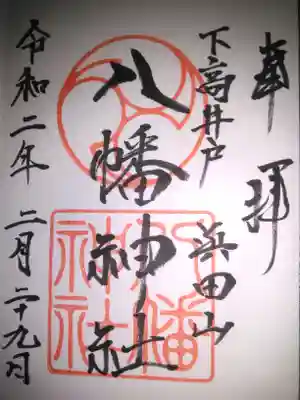 奉拝
下高井戸
浜田山
八幡神社
八幡
神社
令和二年二月二十九日